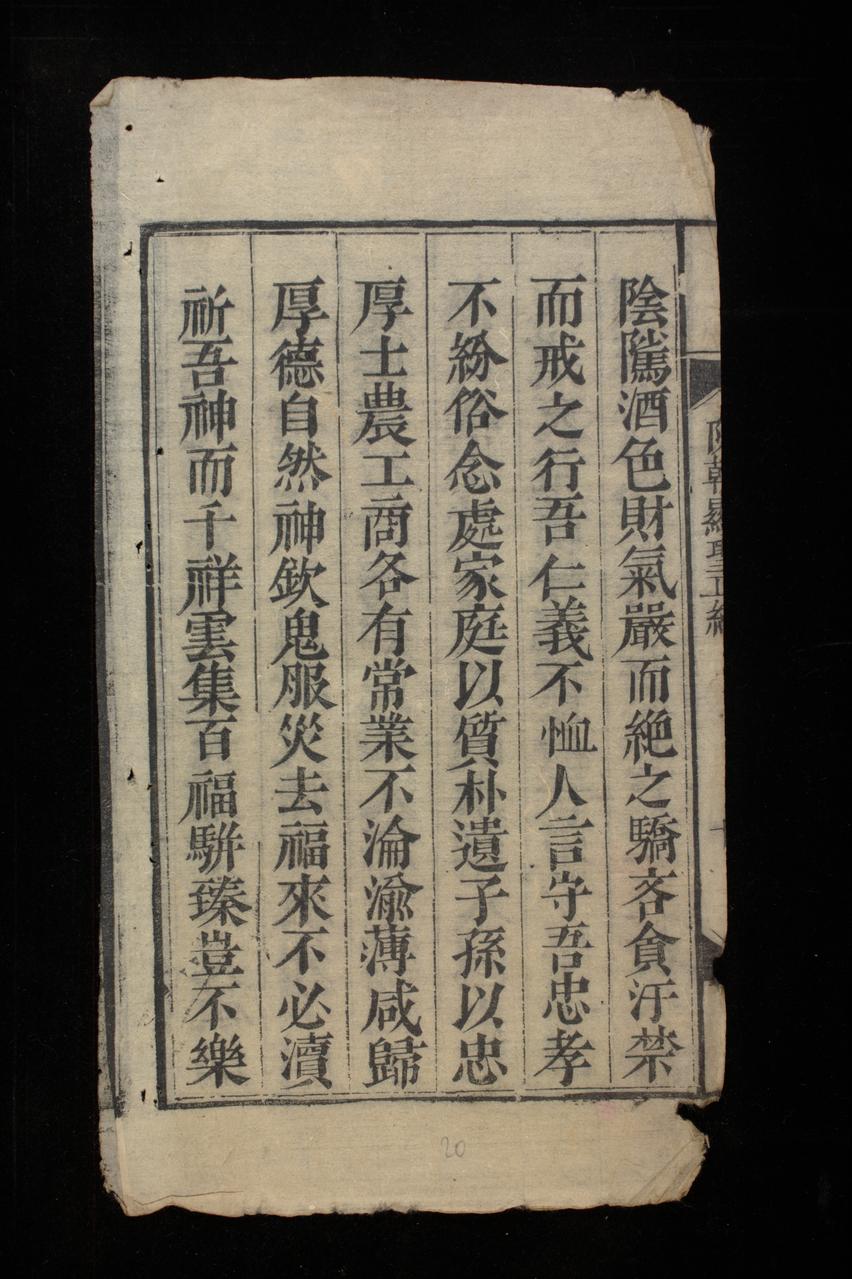 韓顯聖
陰隲酒色財氣嚴而絕之驕吝貪汙禁
而戒之行吾仁義不恤人言守吾忠孝
不紛俗念處家庭以質朴遺子孫以忠
厚士農工商各有常業不淪渝薄咸歸
厚德自然神欽鬼服災去福來不必瀆
祈吾神而千祥雲集百福駢臻豈不樂
20